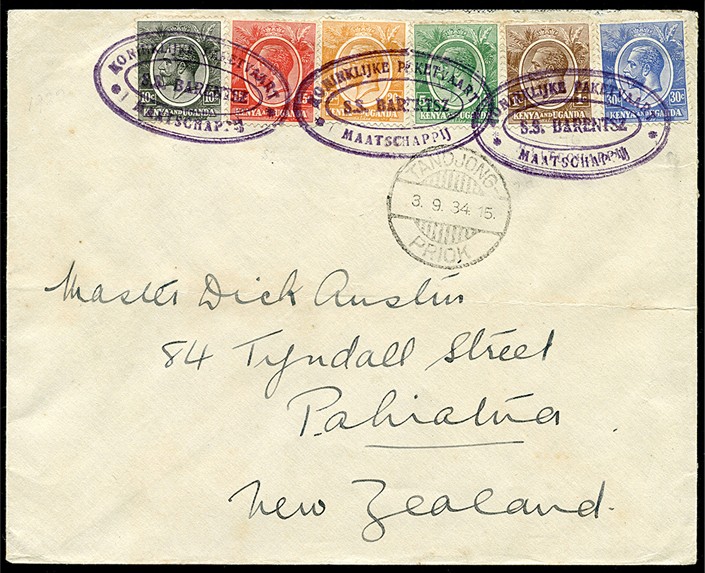 KONINKLIJKE PAKETVAART
S.S. BARENTSZ
MAATSCHAPPIJ
10c 10c
KENYA AND UGANDA
15c
KENYA AND UGANDA
KONINKLIJKE PAKETVAART
S.S. BARENTSZ
MAATSCHAPPIJ
KENYA AND UGANDA
KONINKLIJKE PAKETVAART
S.S. BARENTSZ
MAATSCHAPPIJ
KENYA AND UGANDA
30c 30c
KENYA AND UGANDA
TANDJONG-
3. 9. 34. 15.
PRIOK
Master Dick Austin
84 Tyndall Street
Pahiatua.
New Zealand.